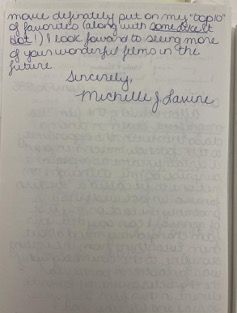 movie definately put on my "top 10"
of favorites (along with some like it
hot!) I look foward to seeing more
of your wonderful films in the
future.
Sincerely,
Michelle J Lavine